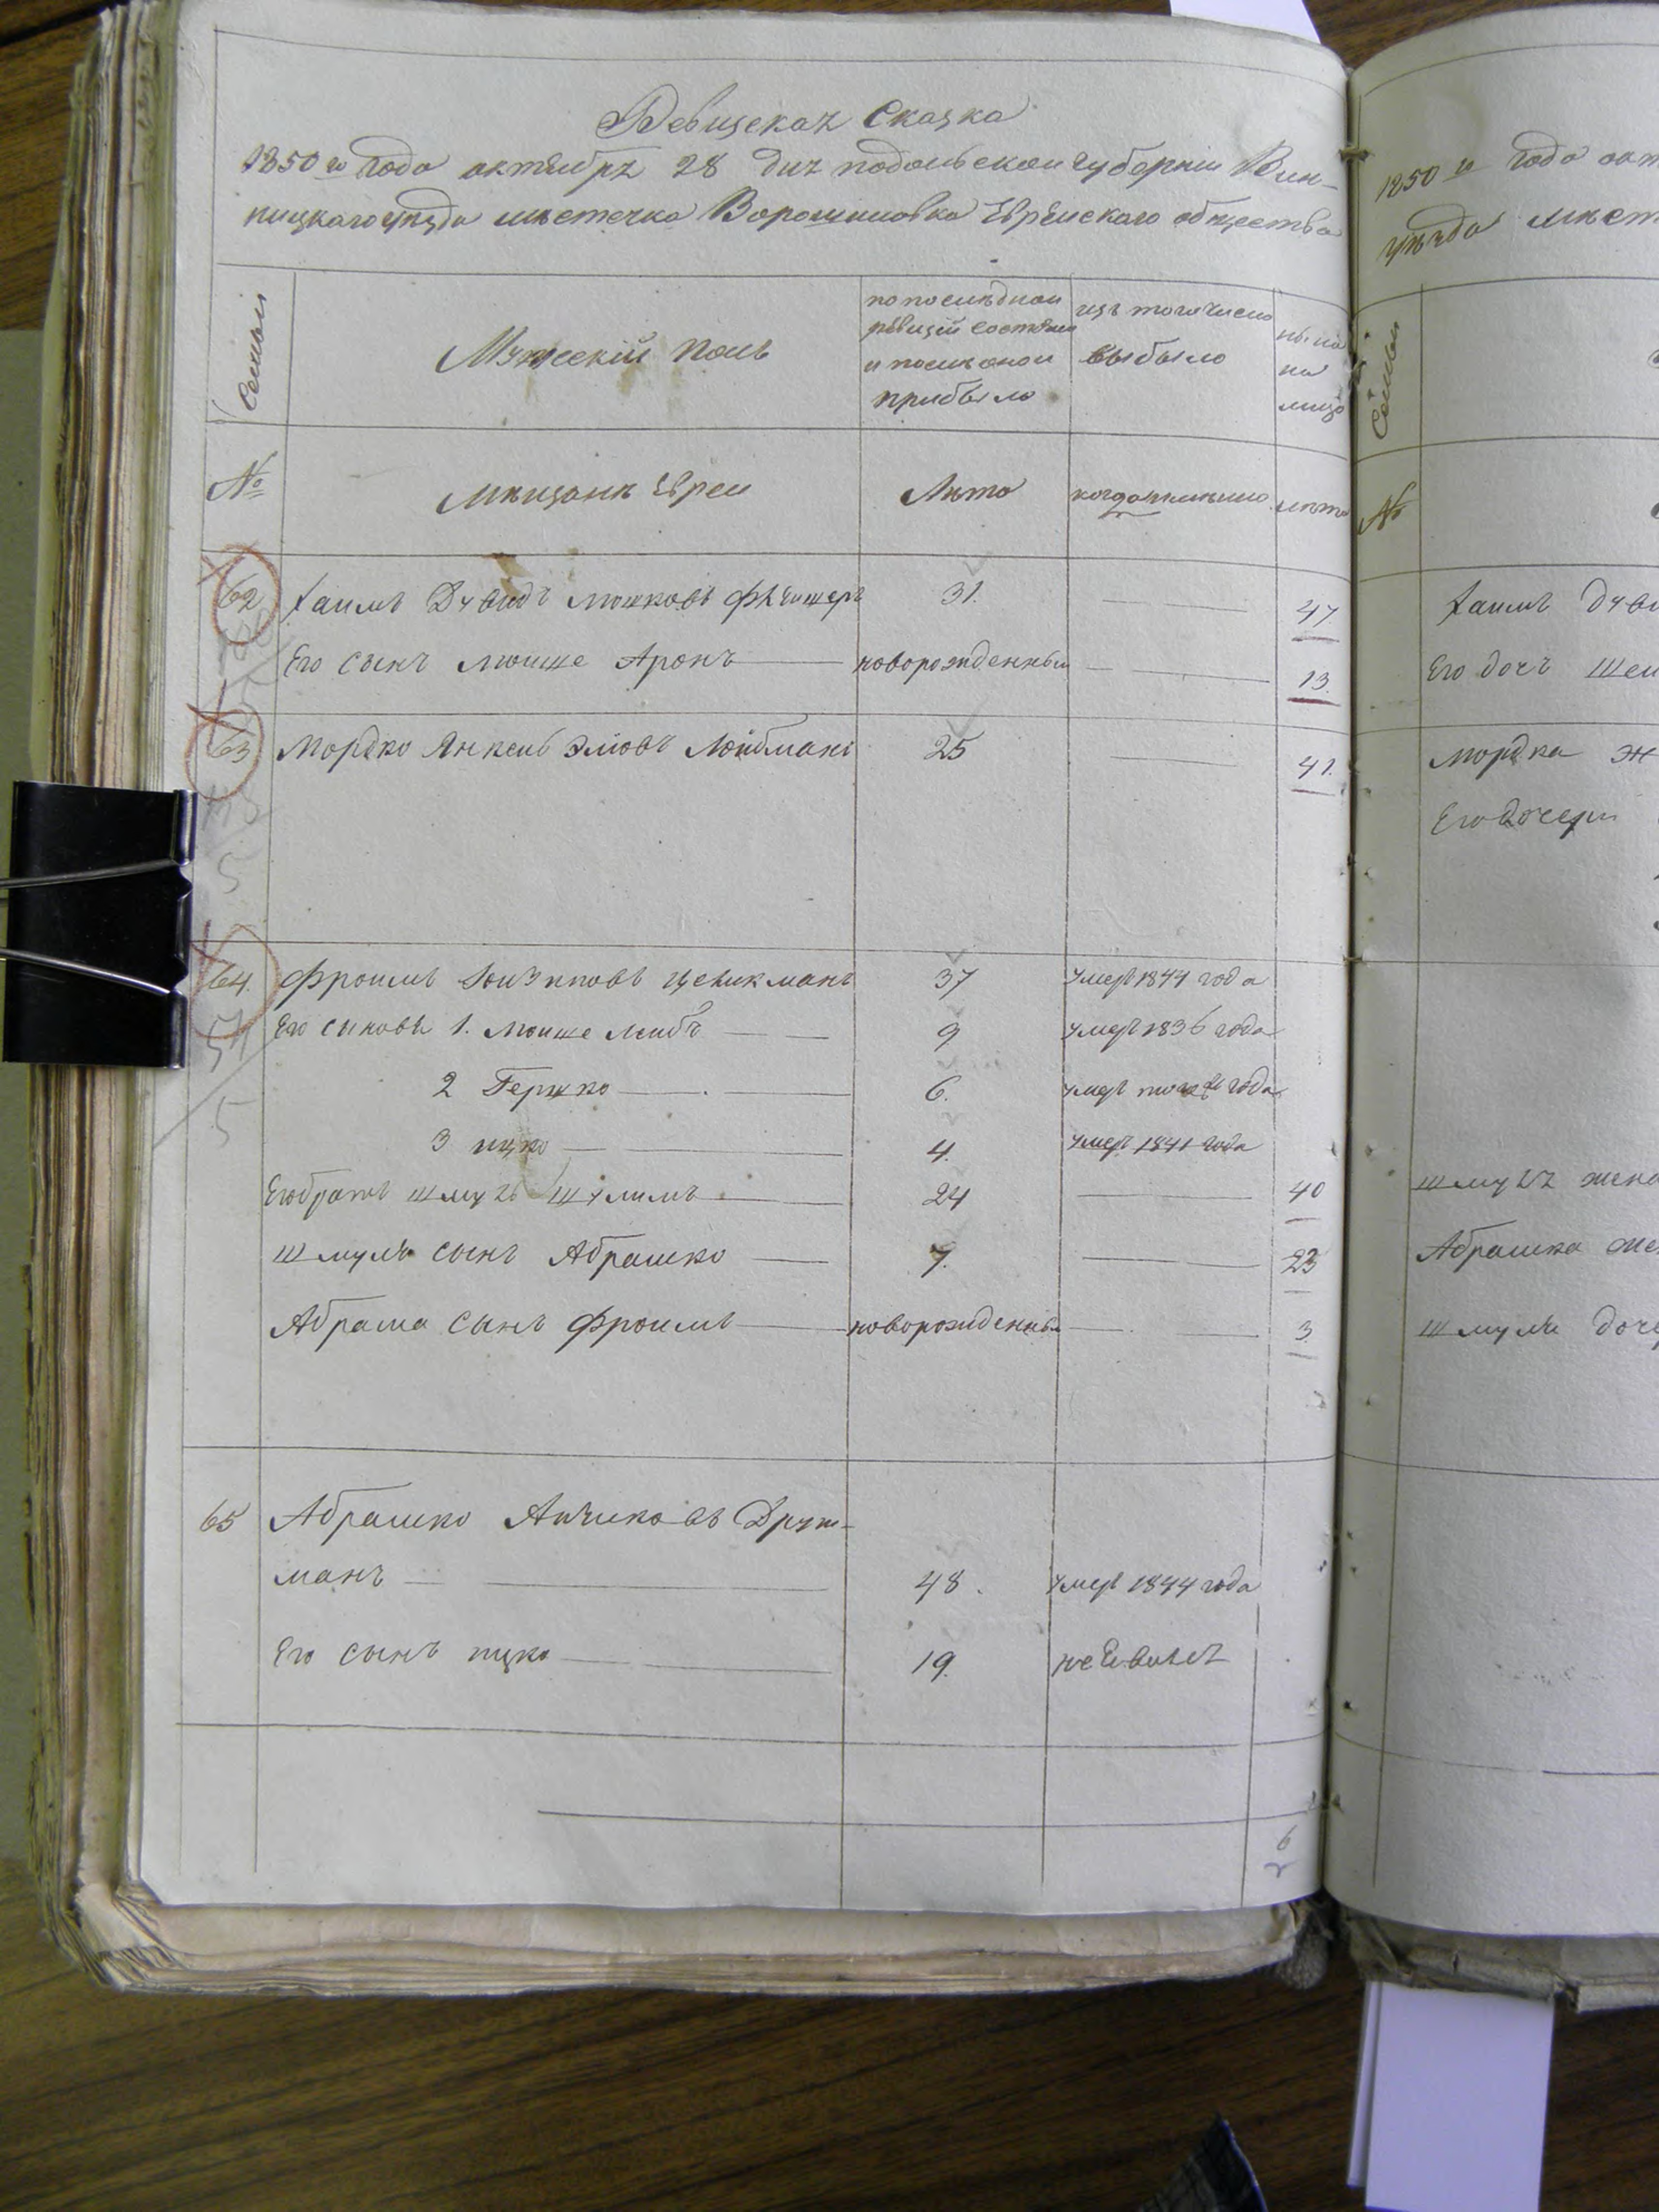 Ревизская Сказка
1850 го года октября 28 дня подольской губернии Вин-
ницкого уезда местечка Ворошиловка Еврейского общества
Семьи
Мужеский полъ
по последней ревизии состояло и после оной прибыло
изъ того числа выбыло
ныне на лицо
№
Мещане Евреи
Лета
когда именно
лета
62 Хаимъ Дувидъ Мошковъ 31. 47
Его сынъ Моише Аронъ новорожденный 13.
63 Мордко Янкель Элювъ Лойбманъ 25 41.
64. Фроимъ Цейикманъ 37 умеръ 1844 года
Его сыновья 1. Моише Лейбъ 9 умеръ 1836 года
2 Гершко 6. умеръ того года
3 ицко 4. умеръ 1841 года
Его братъ Шмуль 24 40
Шмуля сынъ Абрашко 7. 23
Абрама сынъ Фроимъ новорожденный 3.
65 Абрашко Анчиковъ Друк-
манъ 48. умеръ 1844 года
Его сынъ ицко 19.
6
1850 го года окт
уезда мест
Семьи
№
Хаимъ Дуви
Его дочь Шей
Мордка же
Его дочери
Шмуля жена
Абрашка же
Шмуля доче